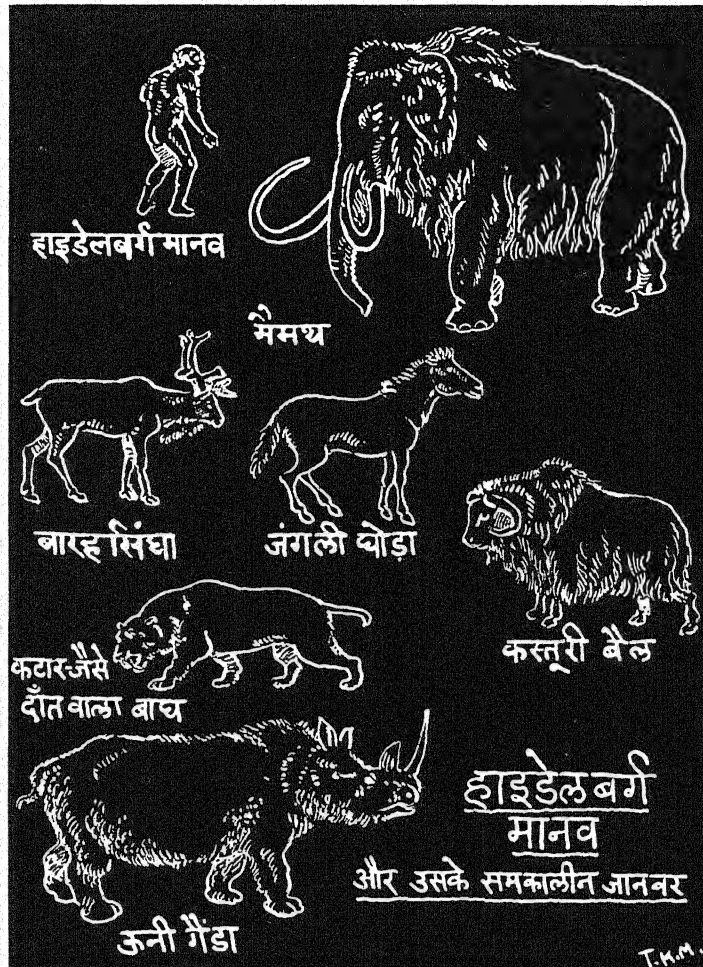 हाइडेलबर्ग मानव
मैमथ
बारहसिंघा
जंगली घोड़ा
कस्तूरी बैल
कटार-जैसे
दाँत वाला बाघ
ऊनी गैंडा
हाइडेलबर्ग
मानव
और उसके समकालीन जानवर
T.K.M.